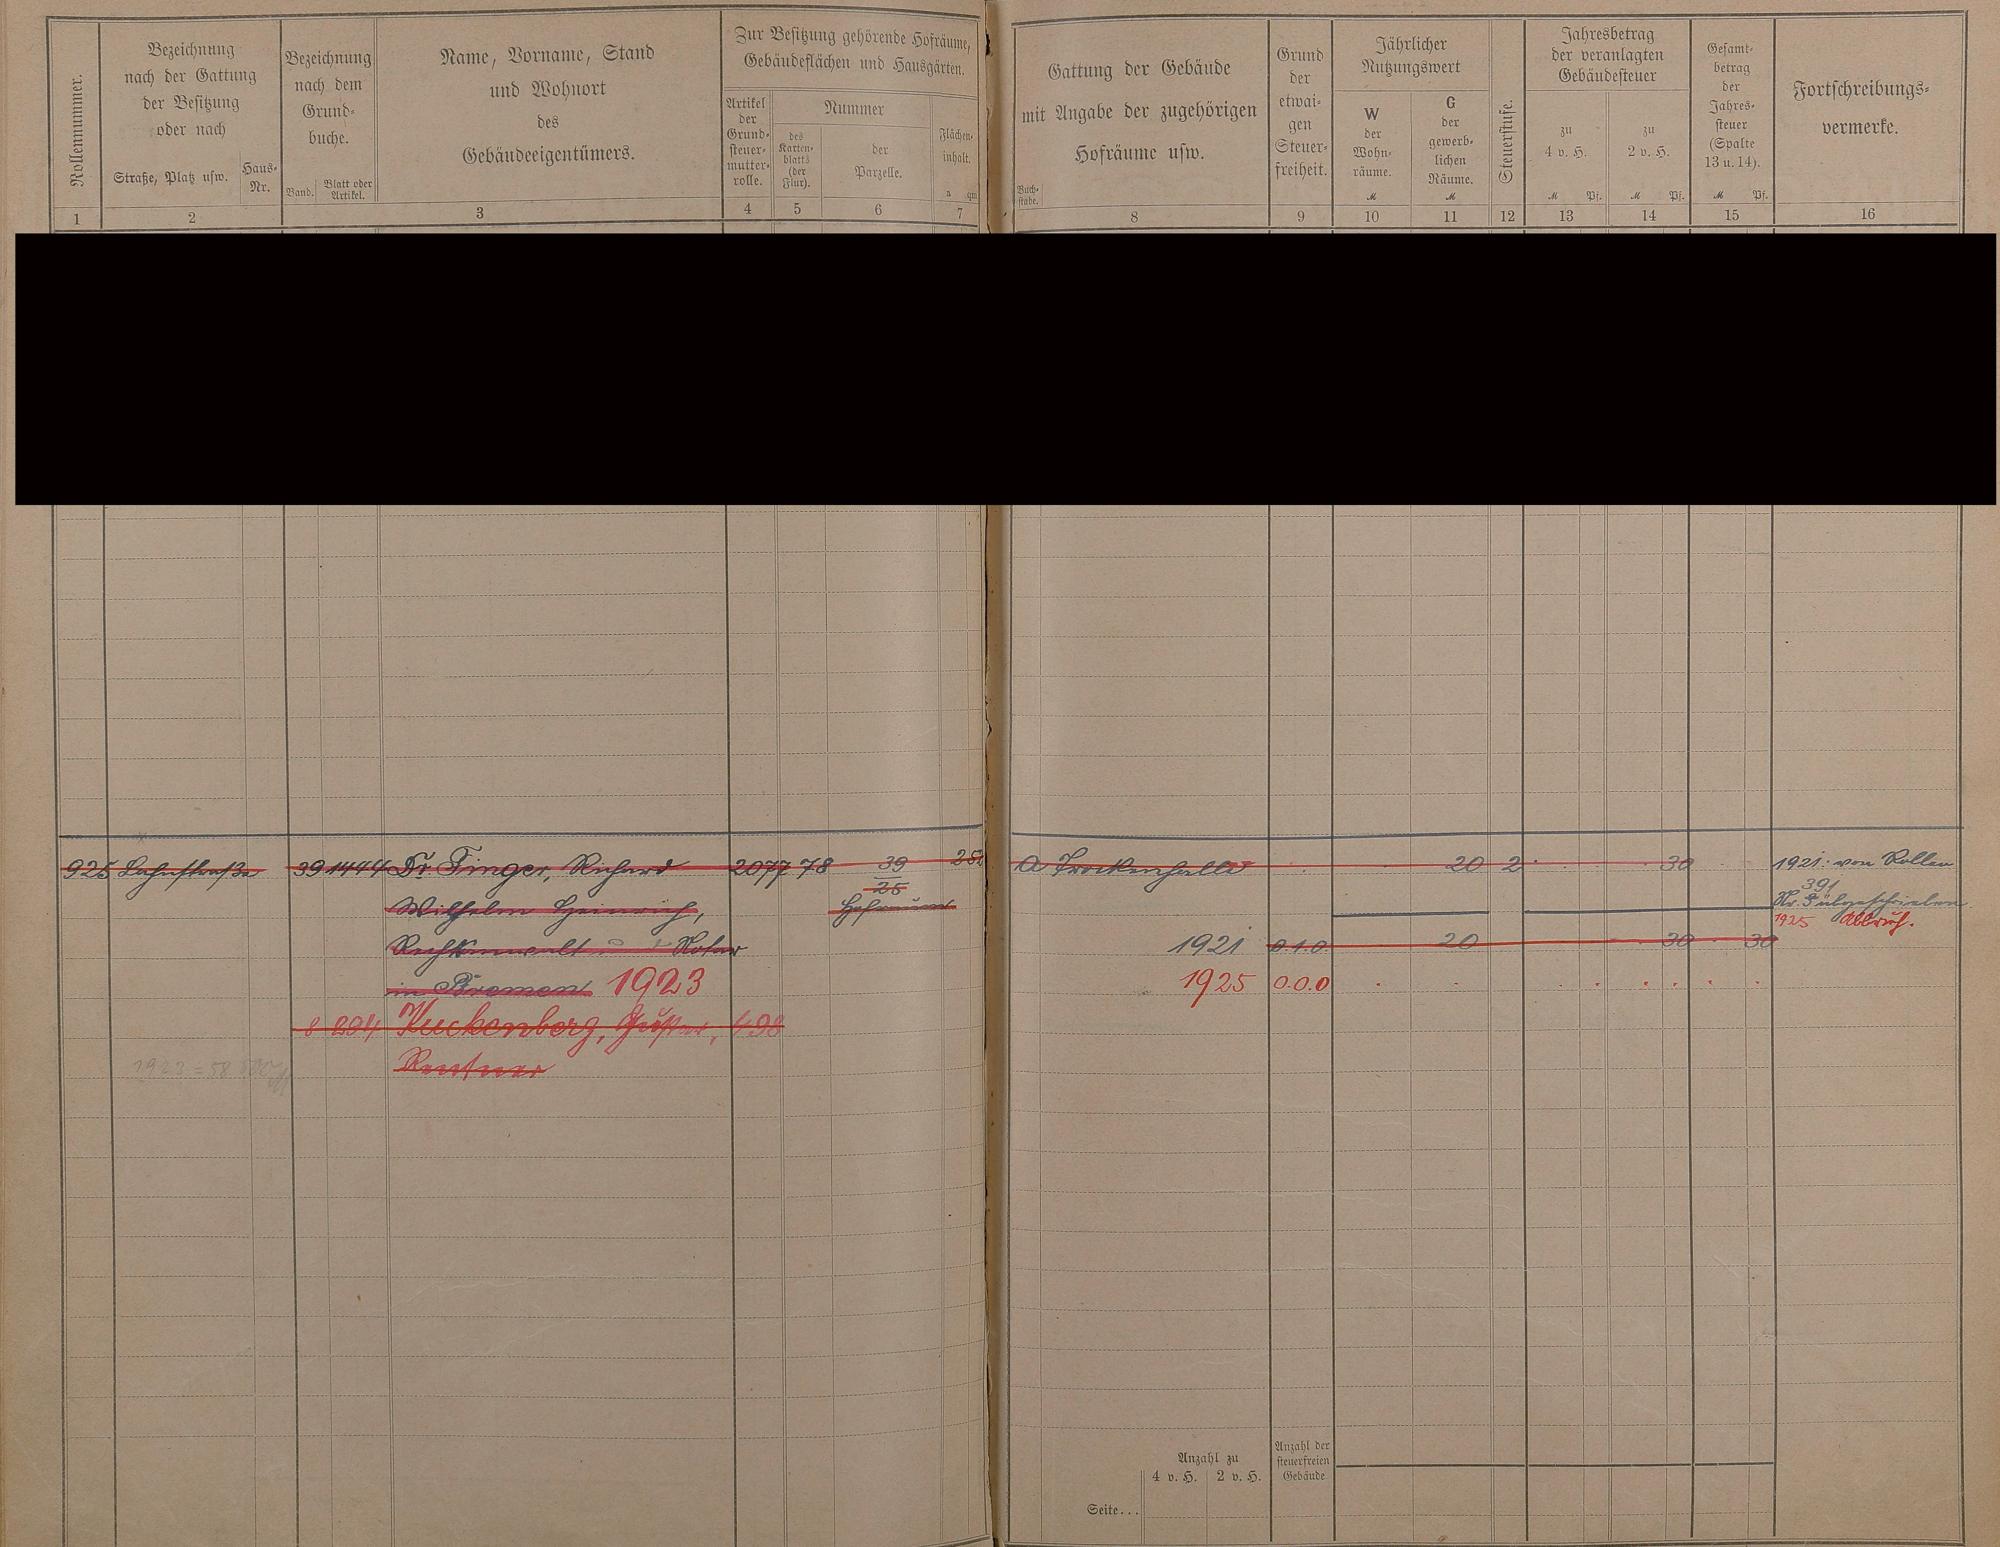 Rollennummer.
Bezeichnung
nach der Gattung
der Besitzung
oder nach
Straße, Platz usw.
Haus-
Nr.
Bezeichnung
nach dem
Grund-
buche.
Band.
Blatt oder
Artikel.
Name, Vorname, Stand
und Wohnort
des
Gebäudeeigentümers.
Zur Besitzung gehörende Hofräume,
Gebäudeflächen und Hausgärten.
Artikel
der
Grund-
steuer-
mutter-
rolle.
Nummer
des
Karten-
blatts
(der
Flur).
der
Parzelle.
Flächen-
inhalt.
a qm
Gattung der Gebäude
mit Angabe der zugehörigen
Hofräume usw.
Buch-
stabe.
Grund
der
etwai-
gen
Steuer-
freiheit.
Jährlicher
Nutzungswert
W
der
Wohn-
räume.
M
G
der
gewerb-
lichen
Räume.
M
Steuerstufe.
Jahresbetrag
der veranlagten
Gebäudesteuer
zu
4 v. H.
M Pf.
zu
2 v. H.
M Pf.
Gesamt-
betrag
der
Jahres-
steuer
(Spalte
13 u. 14).
M Pf.
Fortschreibungs-
vermerke.
1 2 3 4 5 6 7 8 9 10 11 12 13 14 15 16
925 39 1444 Dr. Finger, Richard 2077 78 39 a Trockenhalle 20 2 30 1921: von Rollen
25 391
Wilhelm Heinrich, Hofraum Nr.
1925 Abbruch.
Rechtsanwalt Notar 1921 0.1.0. 20 30 30
in Bremen 1923 1925 0.0.0
8 294 Kuckenberg, Gustav, 498
Rentner
Anzahl zu
4 v. H. 2 v. H.
Anzahl der
steuerfreien
Gebäude
Seite...